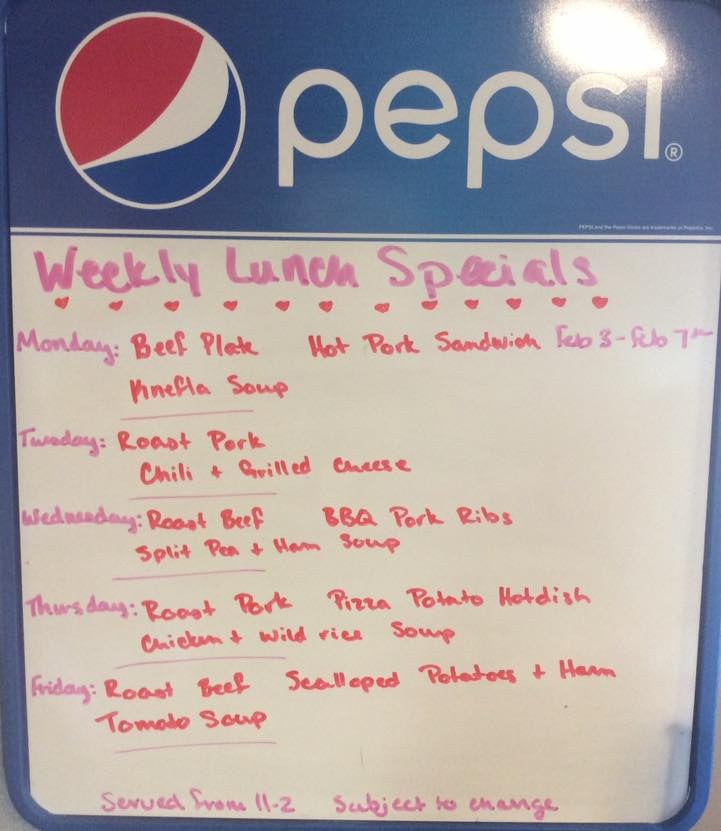 pepsi®
PEPSI and the Pepsi Globe are trademarks of PepsiCo, Inc.
Weekly Lunch Specials
Monday: Beef Plate Hot Pork Sandwich Feb 3 - Feb 7th
Knefla Soup
Tuesday: Roast Pork
Chili + Grilled Cheese
Wednesday: Roast Beef BBQ Pork Ribs
Split Pea + Ham Soup
Thursday: Roast Pork Pizza Potato Hotdish
Chicken + Wild rice Soup
Friday: Roast Beef Scalloped Potatoes + Ham
Tomato Soup
Served from 11-2 Subject to change